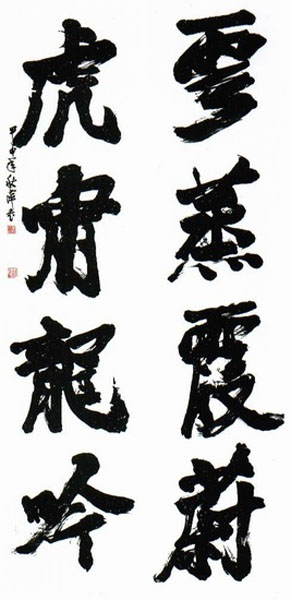 雲蒸霞蔚
虎嘯龍吟
甲申年秋